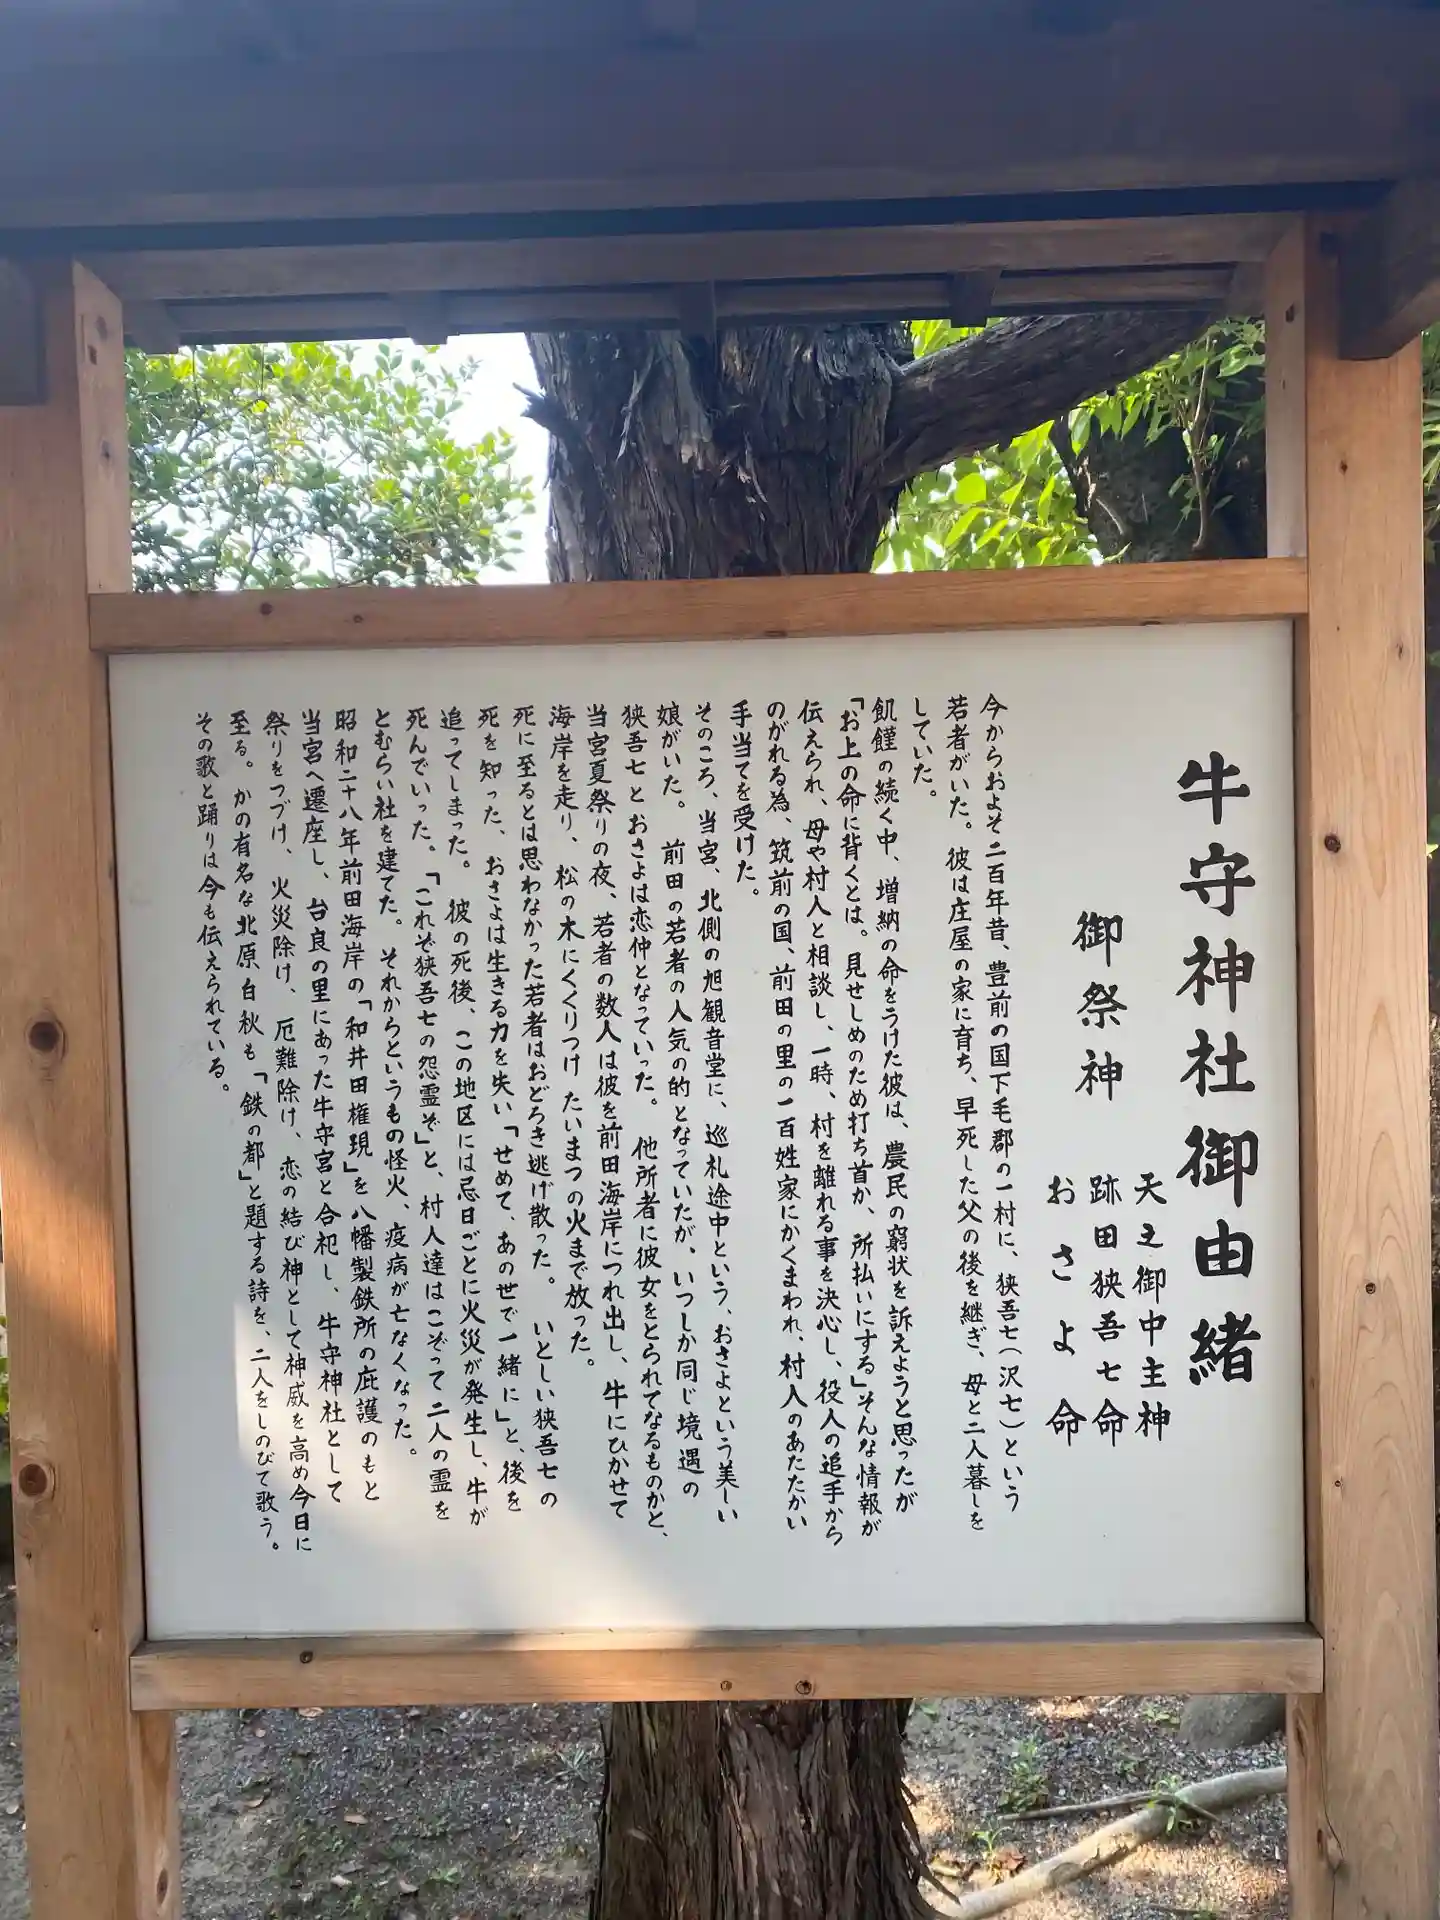 牛守神社御由緒
御祭神
天之御中主神
跡田狭吾七命
おさよ命
今からおよそ二百年昔、豊前の国下毛郡の一村に、狭吾七(沢七)という
若者がいた。彼は庄屋の家に育ち、早死した父の後を継ぎ、母と二人暮しを
していた。
飢饉の続く中、増納の命をうけた彼は、農民の窮状を訴えようと思ったが
「お上の命に背くとは。見せしめのため打ち首か、所払いにする」そんな情報が
伝えられ、母や村人と相談し、一時、村を離れる事を決心し、役人の追手から
のがれる為、筑前の国、前田の里の一百姓家にかくまわれ、村人のあたたかい
手当てを受けた。
そのころ、当宮、北側の旭観音堂に、巡礼途中という、おさよという美しい
娘がいた。前田の若者の人気の的となっていたが、いつしか同じ境遇の
狭吾七とおさよは恋仲となっていった。他所者に彼女をとられてなるものかと、
当宮夏祭りの夜、若者の数人は彼を前田海岸につれ出し、牛にひかせて
海岸を走り、松の木にくくりつけたいまつの火まで放った。
死に至るとは思わなかった若者はおどろき逃げ散った。いとしい狭吾七の
死を知った、おさよは生きる力を失い「せめて、あの世で一緒に」と、後を
追ってしまった。彼の死後、この地区には忌日ごとに火災が発生し、牛が
死んでいった。「これぞ狭吾七の怨霊ぞ」と、村人達はこぞって二人の霊を
とむらい社を建てた。それからというもの怪火、疫病が亡なくなった。
昭和二十八年前田海岸の「和井田権現」を八幡製鉄所の庇護のもと
当宮へ遷座し、台良の里にあった牛守宮と合祀し、牛守神社として
祭りをつづけ、火災除け、厄難除け、恋の結び神として神威を高め今日に
至る。かの有名な北原白秋も「鉄の都」と題する詩を、二人をしのびて歌う。
その歌と踊りは今も伝えられている。